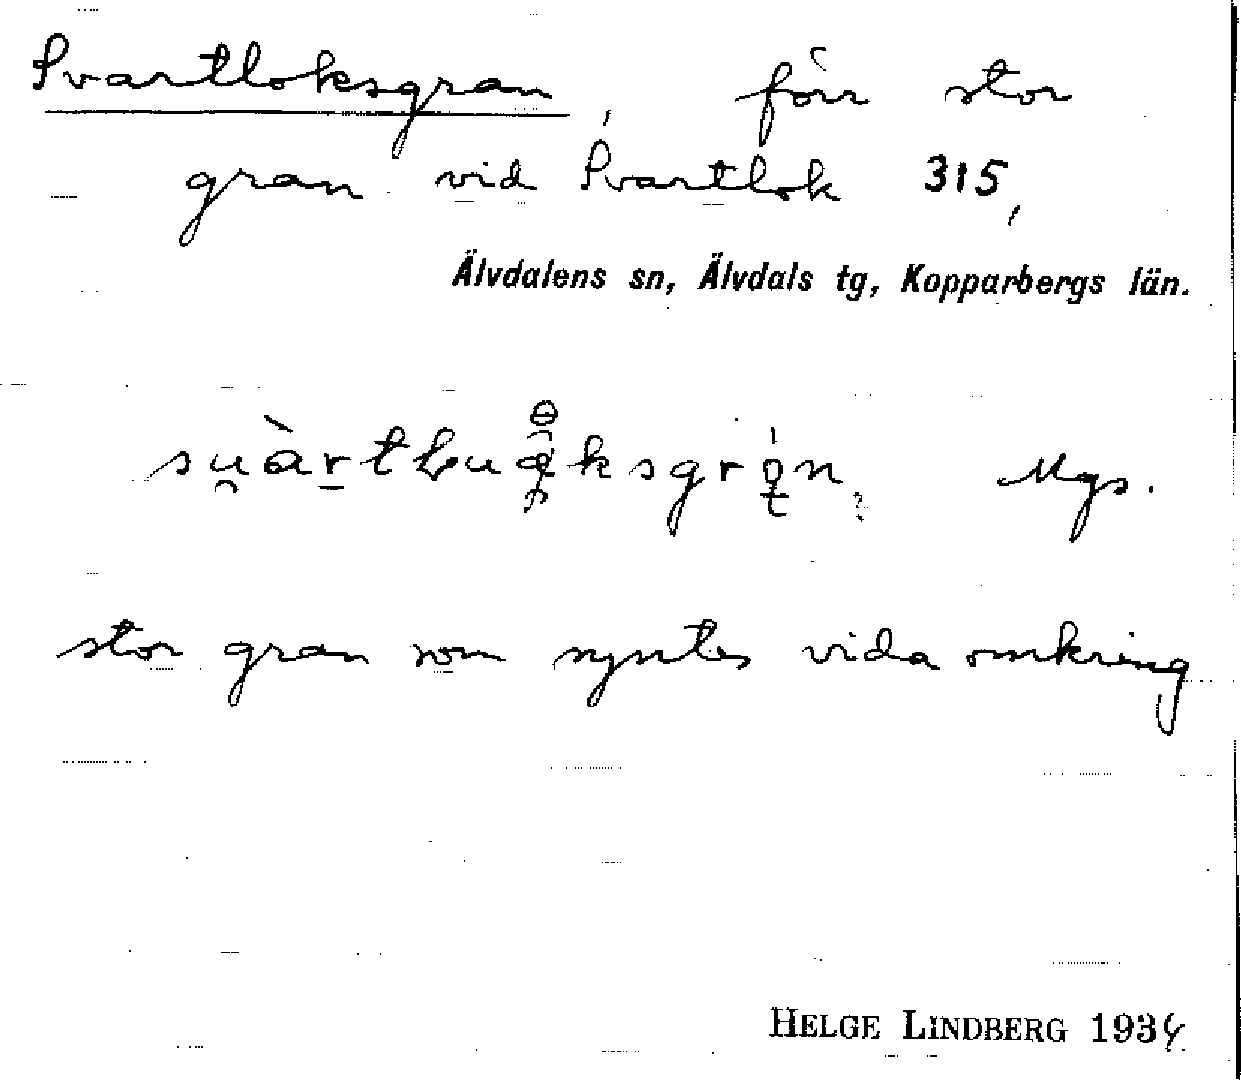 Svartloksgran, förr stor
gran vid Svartlok 315,
Älvdalens sn, Älvdals tg, Kopparbergs län.
Mgs.
stor gran som syntes vida omkring
HELGE LINDBERG 1934